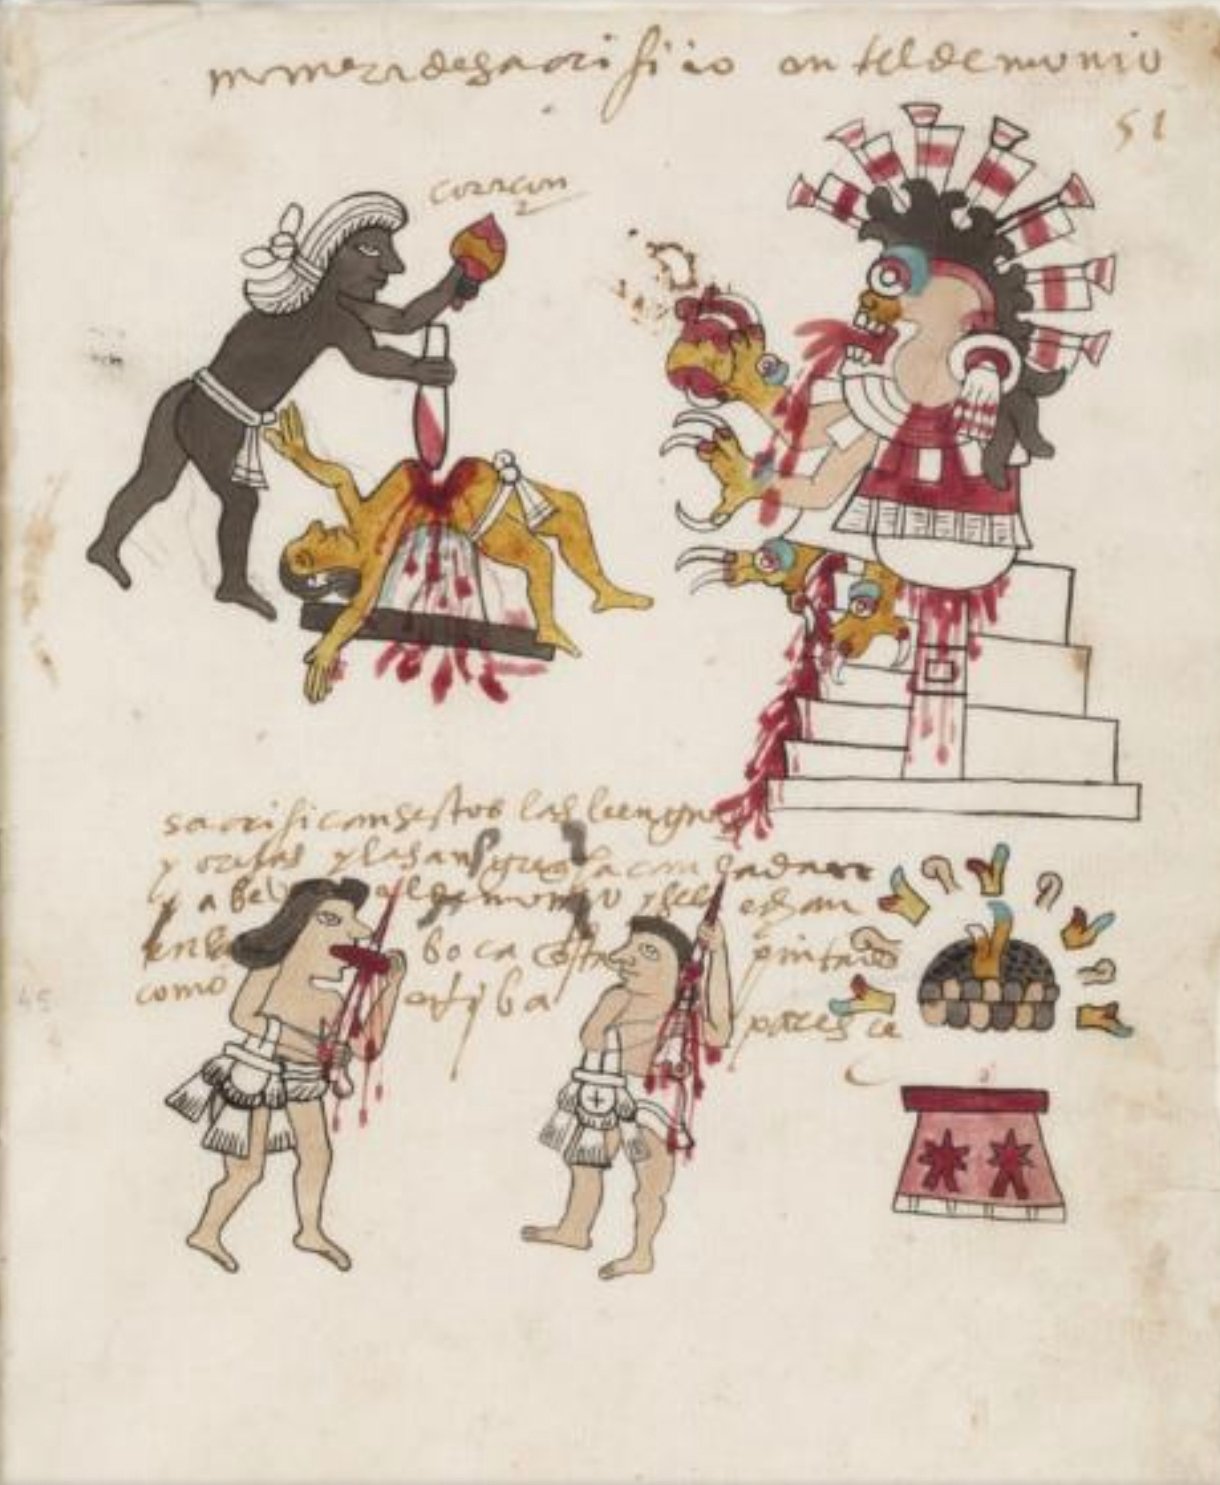 manera de sacrifiçio ante el demonio
51
corazon
sacrificanse estos las lenguas
y orejas y la sangre sacan
el demonio y se la echan
en la boca esta pintado
como arriba paresce